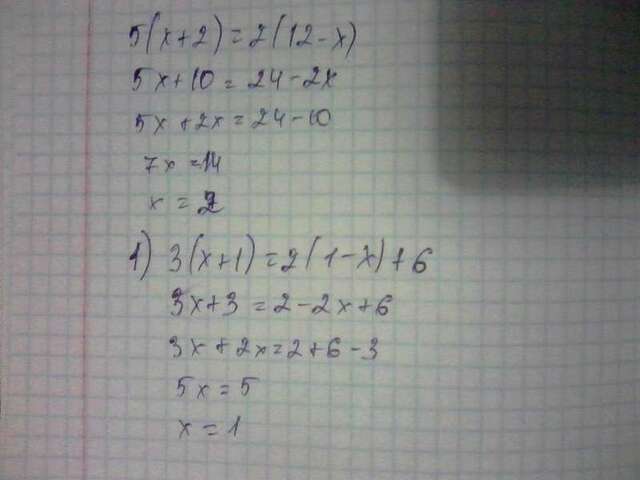 5(x+2)=2(12-x)
5x+10=24-2x
5x+2x=24-10
7x=14
x=2
1) 3(x+1)=2(1-x)+6
3x+3=2-2x+6
3x+2x=2+6-3
5x=5
x=1